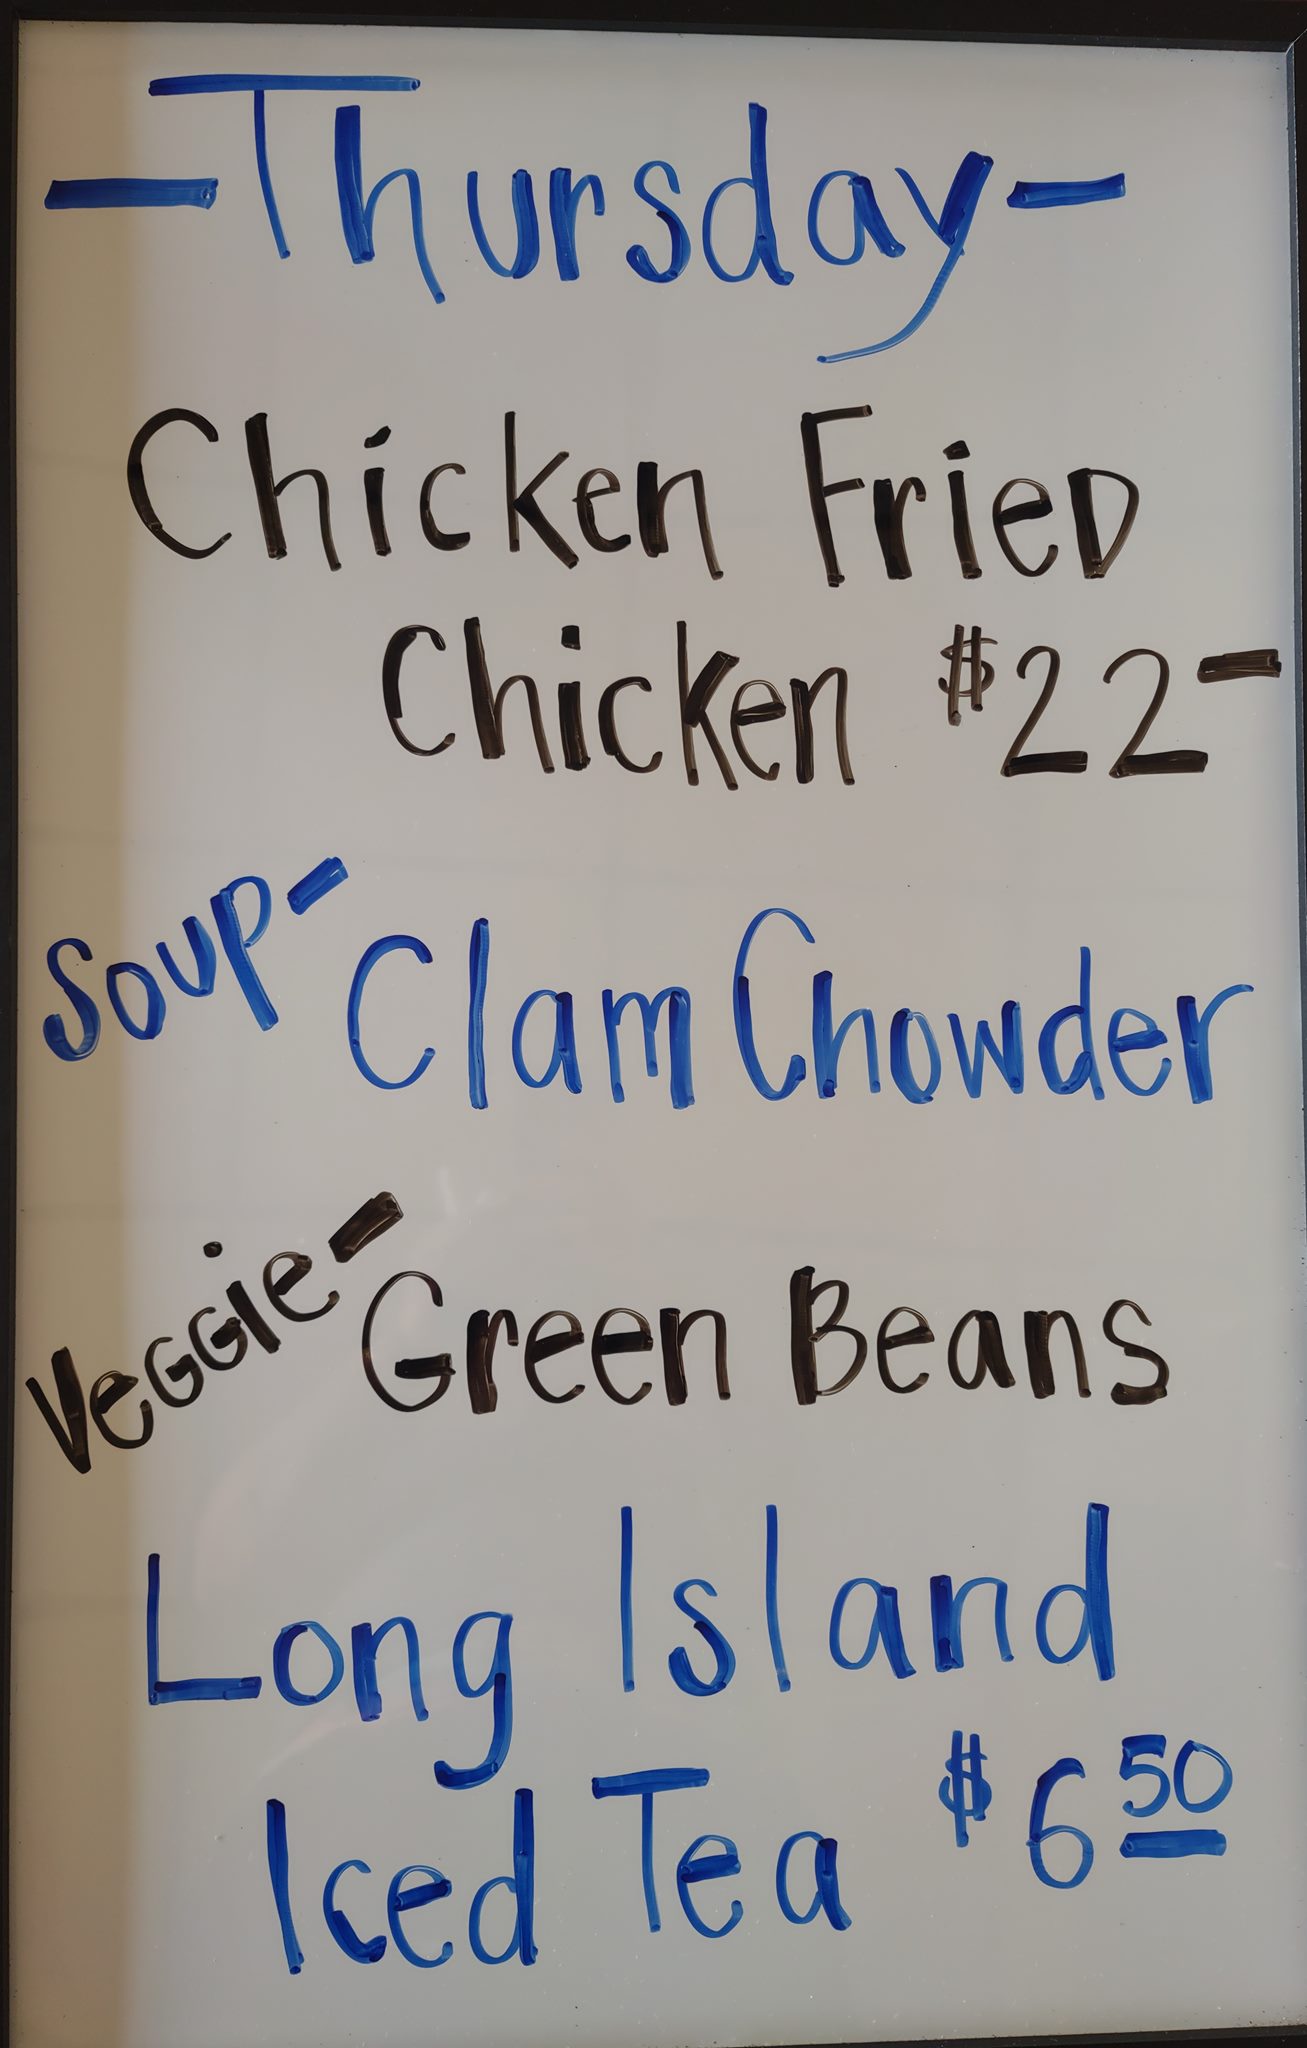 -Thursday-
Chicken Fried
Chicken $22-
Soup- Clam Chowder
Veggie- Green Beans
Long Island
Iced Tea $6 50